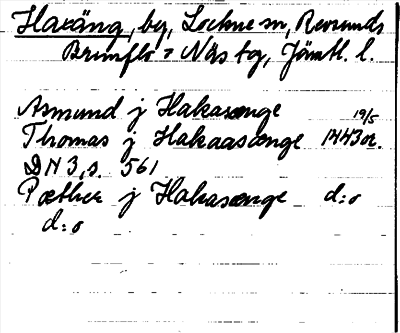 Haxäng, by, Lockne sn, Revsunds
Brunflo o Näs tg, Jämtl. l.
Asmund j Hakasænge 19/5
Thomas j Hakaasænge 1443 or.
DN 3, s. 561
Pæther j Hakasænge d:o
d:o